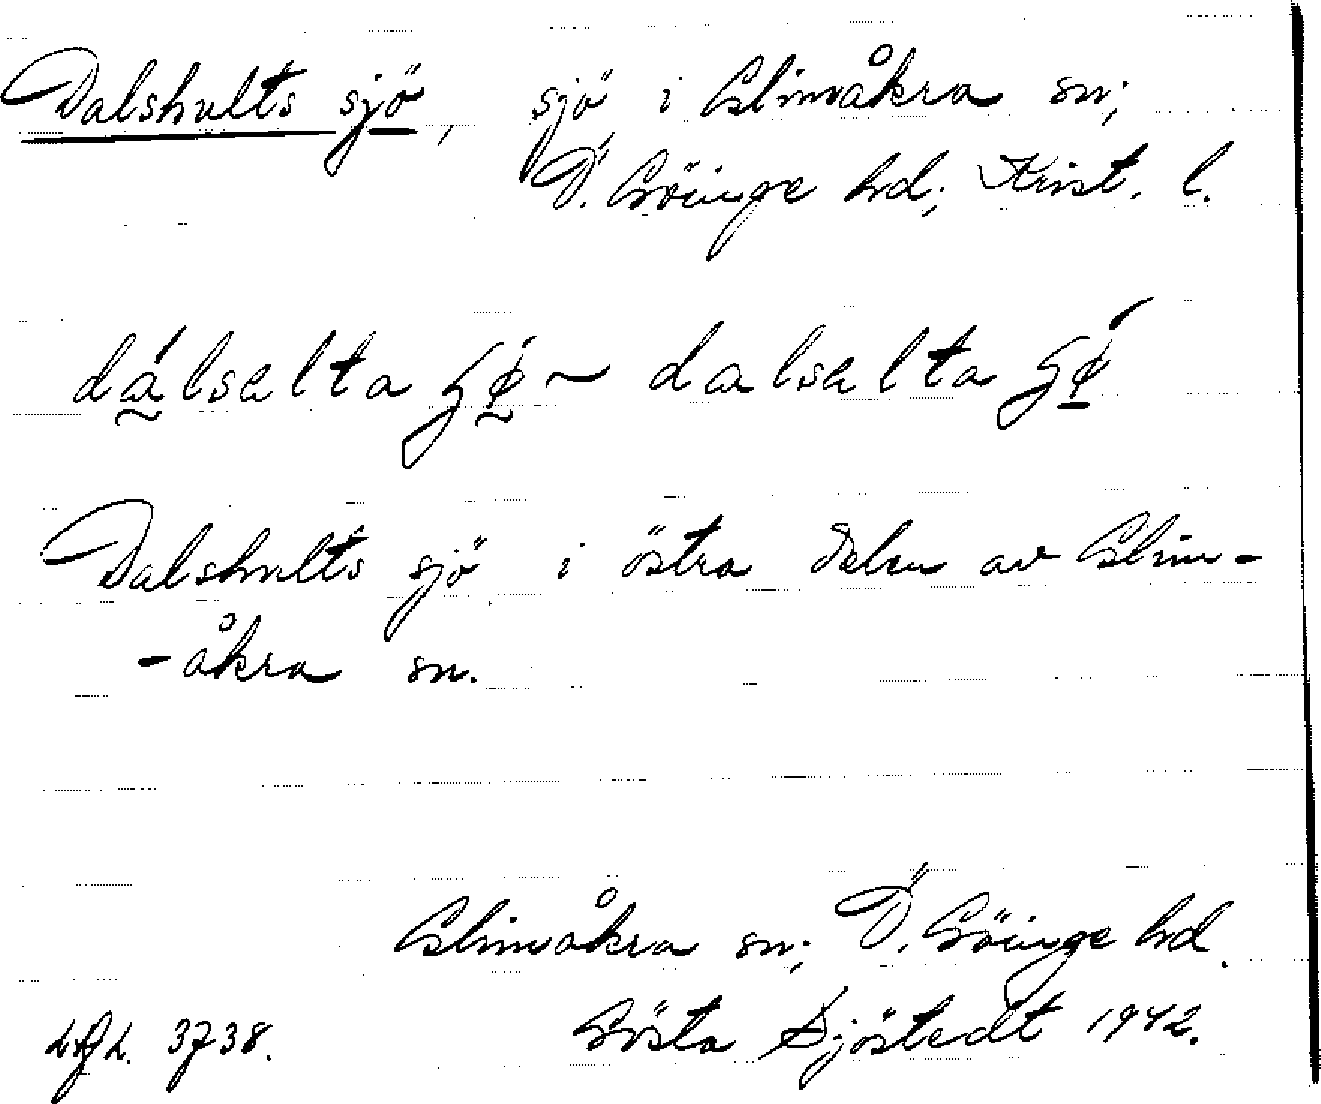 Dalshults sjö, sjö i Glimåkra sn;
Ö. Göinge hd; Krist. l.
dálselta ʂǿ ~ dalselta ʂǿ
Dalshults sjö i östra delen av Glim-
-åkra sn.
Glimåkra sn; Ö. Göinge hd.
3738. Gösta Sjöstedt 1942.